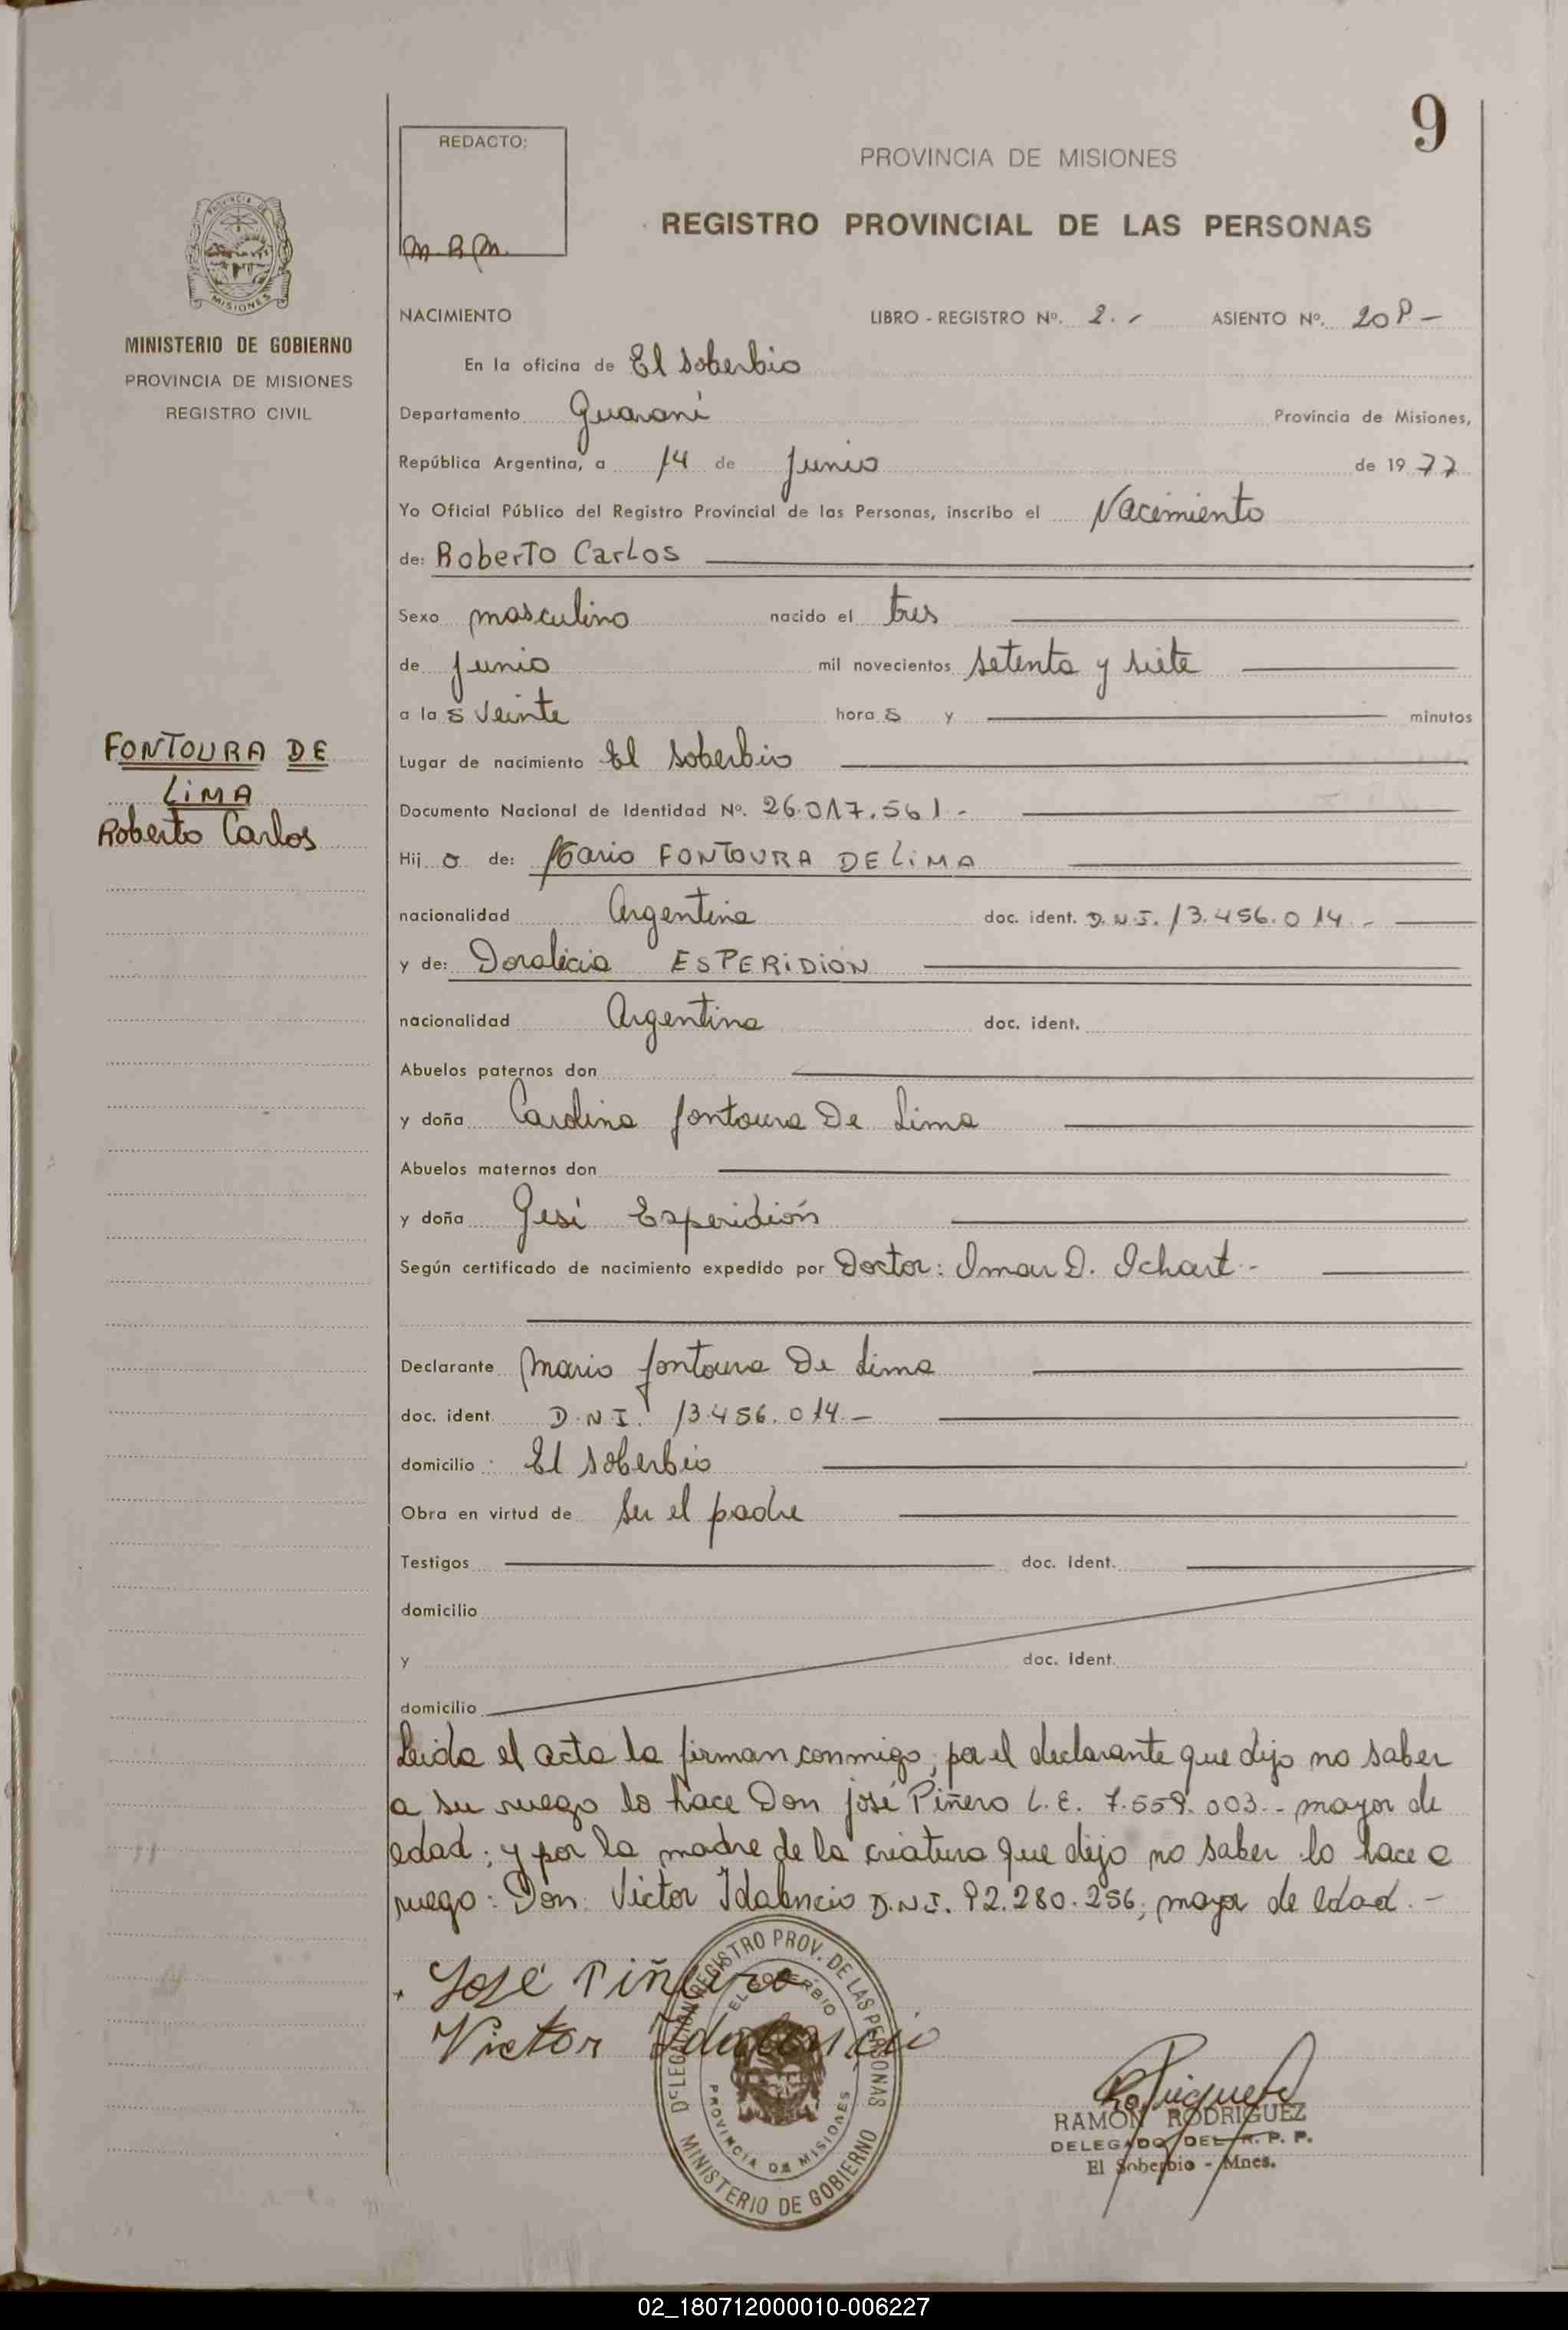 9
REDACTO:
M.R.M.
PROVINCIA DE MISIONES
REGISTRO PROVINCIAL DE LAS PERSONAS
PROVINCIA DE
MISIONES
MINISTERIO DE GOBIERNO
PROVINCIA DE MISIONES
REGISTRO CIVIL
NACIMIENTO LIBRO - REGISTRO Nº. 2.- ASIENTO Nº. 208-
En la oficina de El Soberbio
Departamento Guaraní Provincia de Misiones,
República Argentina, a 14 de Junio de 1977
Yo Oficial Público del Registro Provincial de las Personas, inscribo el Nacimiento
de: Roberto Carlos
Sexo masculino nacido el tres
de Junio mil novecientos setenta y siete
a las veinte horas y minutos
FONTOURA DE
LiMA
Roberto Carlos
Lugar de nacimiento El Soberbio
Documento Nacional de Identidad Nº. 26.017.561-
Hijo de: Mario FONTOURA DE LiMA
nacionalidad Argentina doc. ident. D.N.I. 13.456.014.-
y de: Doralicia ESPERiDiÓN
nacionalidad Argentina doc. ident.
Abuelos paternos don
y doña Carolina Fontoura De Lima
Abuelos maternos don
y doña Gesi Esperidión
Según certificado de nacimiento expedido por Doctor: Omar D. Ichart.-
Declarante Mario Fontoura De Lima
doc. ident. D.N.I. 13.456.014.-
domicilio: El Soberbio
Obra en virtud de ser el padre
Testigos doc. ident.
domicilio
y doc. ident.
domicilio
Leida el acta la firman conmigo, por el declarante que dijo no saber
a su ruego lo hace Don José Piñero L.E. 7.558.003.- mayor de
edad; y por la madre de la criatura que dijo no saber lo hace a
ruego: Don: Victor Idalencio D.N.I. 92.280.256; mayor de edad.-
José Piñero
Victor Idalencio
DELEGACION REGISTRO PROV. DE LAS PERSONAS
EL SOBERBIO
PROVINCIA DE MISIONES
MINISTERIO DE GOBIERNO
RAMON RODRIGUEZ
DELEGADO DEL R. P. P.
El Soberbio - Mnes.
02_180712000010-006227